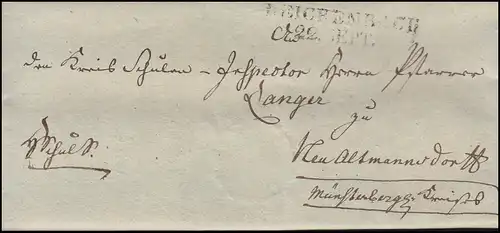 REICHENBACH
22. SEPT.
den Kreis Schulen-Inspector Herrn Pfarrer
Langer
zu
Neu Altmannsdorff
HSchulS.
Münsterbergschen Kreises